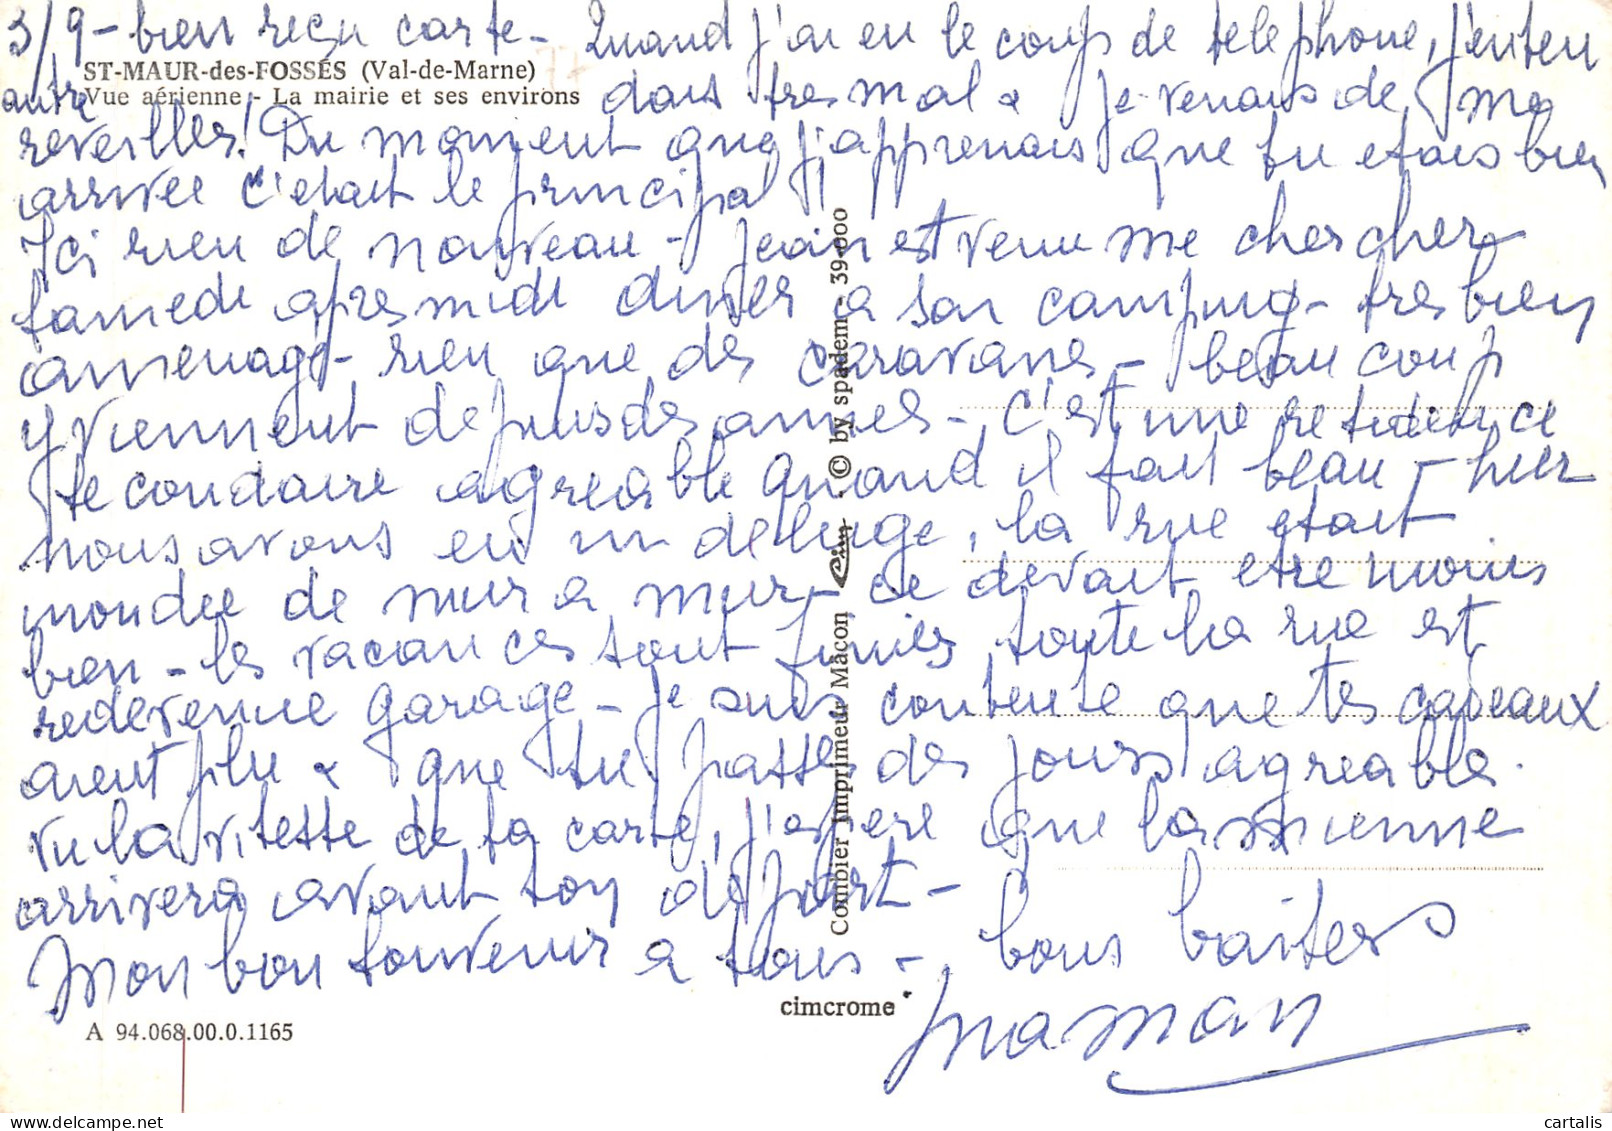 3/9 - bien reçu carte - Quand j'ai eu le coup de telephone, j'enten
autre dais tres mal & je venais de me
ST-MAUR-des-FOSSÉS (Val-de-Marne)
Vue aérienne - La mairie et ses environs
reveiller! Du moment que j'apprenais que tu etais bien
arrivée c'etait le principal
Ici rien de nouveau - Jean est venu me chercher
samedi apres midi diner a son camping - tres bien
amenagé - rien que des caravanes - beaucoup
y viennent depuis des annees - c'est une residence
secondaire agreable quand il fait beau - hier
nous avons eu un deluge, la rue etait
inondee de mur a mur - ce devait etre moins
bien - les vacances sont finies, toute la rue est
redevenue garage - je suis contente que tes cadeaux
aient plu & que tu passes des jours agreables.
vu la vitesse de ta carte, j'espere que la mienne
arrivera avant ton depart -
Mon bon souvenir a tous - bons baisers
maman
Combier Imprimeur Mâcon Cim © by spadem - 39-000
cimcrome
A 94.068.00.0.1165
cartalis